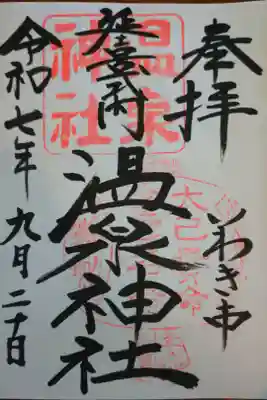 奉拝
いわき市
延喜式内
温泉神社
温泉
神社
令和七年九月二十日